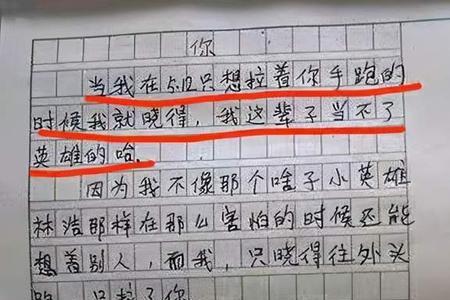 你
当我在5.12只想拉着你手跑的
时候我就晓得，我这辈子当不了
英雄的哈.
因为我不像那个啥子小英雄
林浩那样在那么害怕的时候还能
想着别人，而我，只晓得往外头
跑，只拉了你